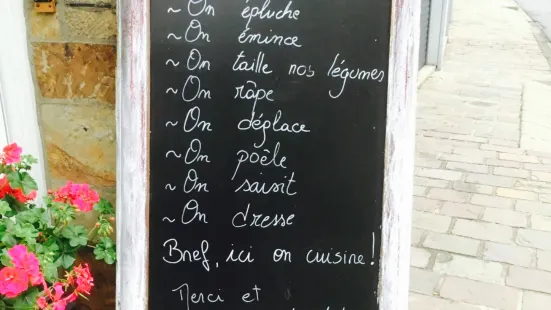 ~ On épluche
~ On émince
~ On taille nos légumes
~ On râpe
~ On déglace
~ On poêle
~ On saisit
~ On dresse
Bref, ici on cuisine!
Merci et